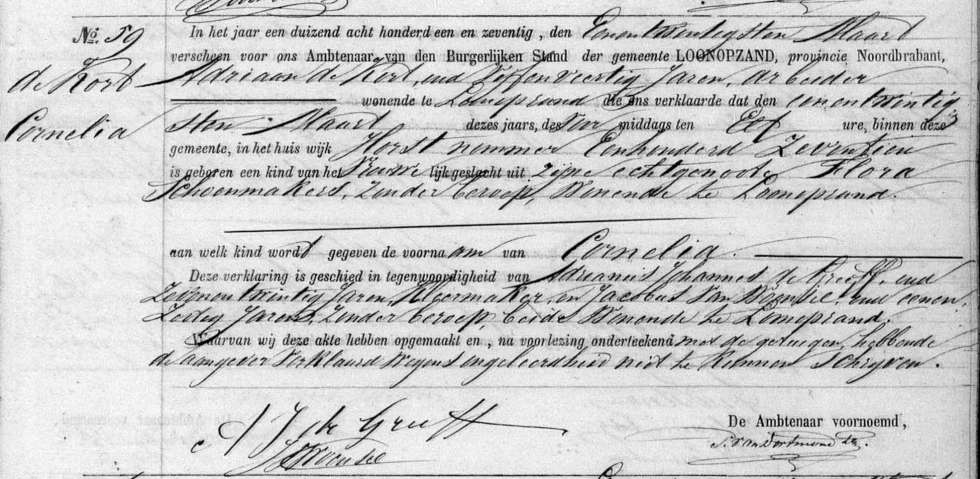 No. 59
de Kort
Cornelia
In het jaar een duizend acht honderd een en zeventig, den Eenentwintigsten Maart
verscheen voor ons Ambtenaar van den Burgerlijken Stand der gemeente LOONOPZAND, provincie Noordbrabant,
Adriaan de Kort, oud Vijfenveertig Jaren, arbeider
wonende te Loonopzand die ons verklaarde dat den eenentwintig
sten Maart dezes jaars, des Voor middags ten Elf ure, binnen deze
gemeente, in het huis wijk Horst nommer Eenhonderd Zeventien
is geboren een kind van het Vrouwe lijk geslacht uit zijne echtgenoote Flora
Schoenmakers, Zonder beroep, Wonende te Loonopzand.
aan welk kind wordt gegeven de voornaam van Cornelia.
Deze verklaring is geschied in tegenwoordigheid van Adrianus Johannes de Greeff, oud
Zevenentwintig Jaren, en Jacobus Van oud eenen
Zestig Jaren, Zonder beroep, beide Wonende te Loonopzand.
Waarvan wij deze akte hebben opgemaakt en, na voorlezing onderteekend met de getuigen, hebbende
de aangever Verklaard Wegens ongeleerdheid niet te Kunnen Schryven.
A J de Greeff
De Ambtenaar voornoemd,